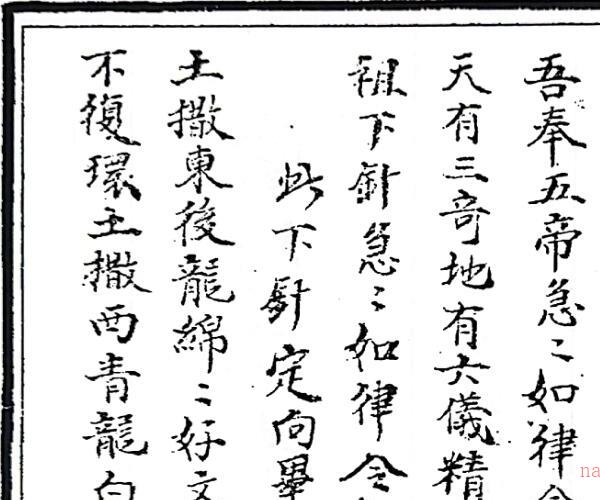 吾奉五帝急〻如律令
天有三奇地有六儀精
祖下針急〻如律令
此下針定向畢
土撒東後龍綿〻好文
不復環土撒西青龍白
na